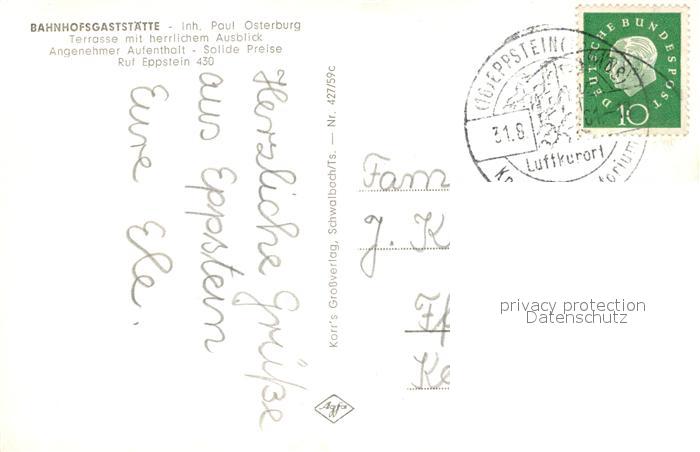 BAHNHOFSGASTSTÄTTE - Inh. Paul Osterburg
Terrasse mit herrlichem Ausblick
Angenehmer Aufenthalt - Solide Preise
Ruf Eppstein 430
Herzliche Grüße
aus Eppstein
Eure Ele.
Korr's Großverlag, Schwalbach/Ts. — Nr. 427/59c
Agfa
Fam
J. K
Ke
(16) EPPSTEIN
31.8.
Luftkurort
DEUTSCHE BUNDESPOST
10
privacy protection
Datenschutz